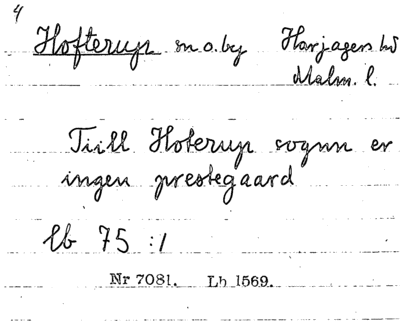 4
Hofterup sn o. by Harjagers hd
Malm. l.
Tiill Hoterup sognn er
ingen prestegaard
lb 75 :1
Nr 7081. Lh 1569.